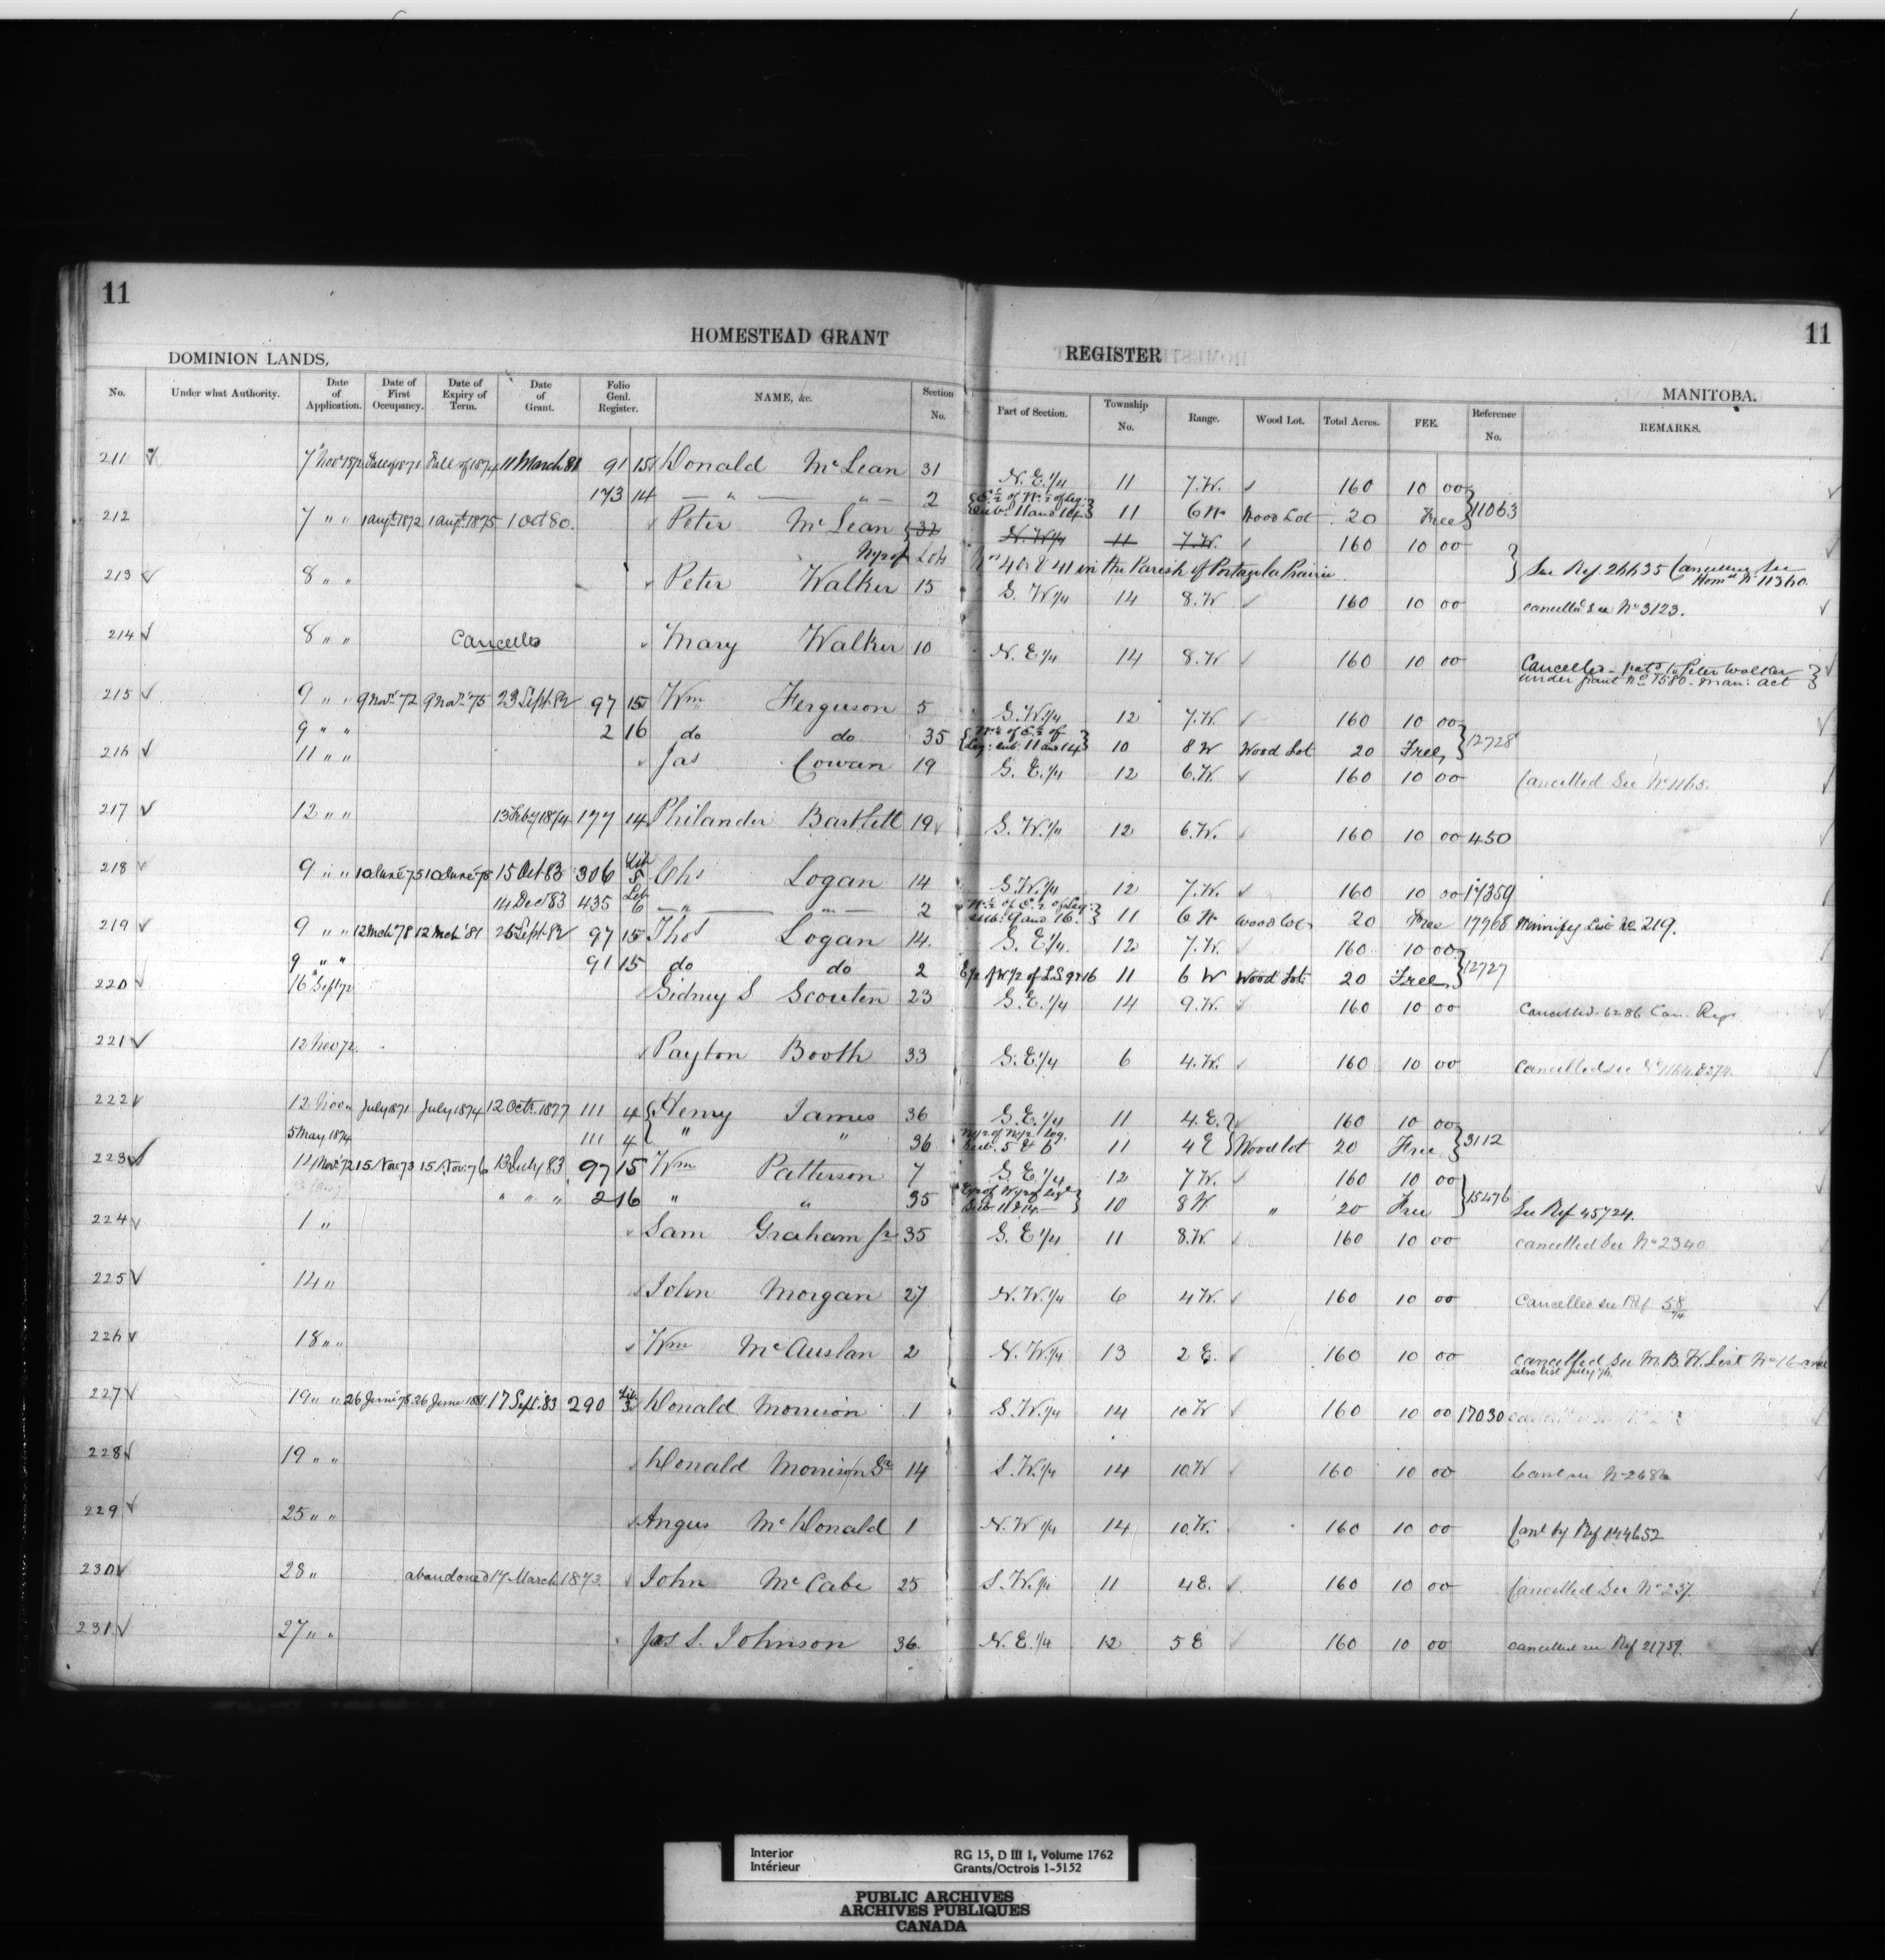 11
11
HOMESTEAD GRANT
REGISTER
DOMINION LANDS,
MANITOBA.
No. Under what Authority. Date of Application. Date of First Occupancy. Date of Expiry of Term. Date of Grant. Folio Genl. Register. NAME, &c. Section No. Part of Section. Township No. Range. Wood Lot. Total Acres. FEE. Reference No. REMARKS.
211 7 Nov 1872 Fall of 1871 Fall of 1874 11 March 81 91 15 Donald McLean 31 N. E. 1/4 11 7.W. 160 10 00
173 14 — " — " — 2 E½ of W½ of Leg: Sub: 11 and 14 11 6 W Wood Lot 20 Free 11063
212 7 " " 1 Augt 1872 1 Augt 1875 1 Oct 80. Peter McLean 32 N. W 1/4 11 7.W. 160 10 00
Lots Nos 40 & 41 in the Parish of Portage la Prairie See Ref. 26635 Cancelled See Homd No 11360
213 8 " " Peter Walker 15 S. W 1/4 14 8.W 160 10 00 cancelled see No 3123.
214 8 " " Cancelled Mary Walker 10 N. E 1/4 14 8.W 160 10 00 Cancelled - patd to Peter Walker
under grant No 7580 - Man: Act
215 9 " " 9 Novr 72 9 Novr 75 23 Sept 82 97 15 Wm Ferguson 5 S.W 1/4 12 7.W. 160 10 00
9 " " 2 16 do do 35 W½ of E½ of Leg: sub: 11 and 14 10 8 W Wood Lot 20 Free 12728
216 11 " " Jas Cowan 19 S. E. 1/4 12 6.W. 160 10 00 Cancelled See No 1165.
217 12 " " 13 Feby 1874 177 14 Philander Bartlett 19 S. W. 1/4 12 6.W. 160 10 00 450
218 9 " " 10 June 75 10 June 78 15 Oct 83 306 Lib 5 Chs Logan 14 S.W. 1/4 12 7.W. 160 10 00 17359
14 Dec 83 435 Lib 6 — " — " — 2 W½ of E½ of Leg: sub. 9 and 16. 11 6 W Wood Lot 20 Free 17968 Winnipeg List No 219.
219 9 " " 12 Mch 78 12 Mch '81 25 Sept 82 97 15 Thos Logan 14. S. E 1/4. 12 7.W. 160 10 00
9 " " 91 15 do do 2 E½ of W½ of L.S 9 & 16 11 6 W Wood Lot 20 Free 12727
220 16 Sept 72 Sidney S Scouten 23 S. E. 1/4 14 9.W. 160 10 00 Cancelled. 6286 Can. Regr
221 12 Nov 72. Payton Booth 33 S. E 1/4 6 4.W. 160 10 00 Cancelled see
222 12 Nov " July 1871 July 1874 12 Octr 1877 111 4 Henry James 36 S. E. 1/4 11 4.E. 160 10 00
5 May 1874 111 4 " " 36 N½ of N½ Leg. Sub. 5 & 6 11 4 E Wood lot 20 Free 3112
223 14 Nov. 72 15 Nov 73 15 Nov: 76 13 July 83 97 15 Wm Patterson 7 S. E 1/4 12 7 W. 160 10 00
" " " 2 16 " " 35 E½ of W½ of Legl Sub 11 & 14 10 8 W " 20 Free 15476 See Ref 45724.
224 1 " Sam Graham Jr 35 S. E 1/4 11 8.W. 160 10 00 cancelled See No 2340
225 14 " John Morgan 27 N. W. 1/4 6 4 W. 160 10 00 Cancelled see Ref 58/74
226 18 " " Wm McAuslan 2 N. W. 1/4 13 2 E. 160 10 00 cancelled See M. B. W. List No 16 and
also list July '76.
227 19 " " 26 June 78 26 June 1881. 17 Sept. 83 290 Lib 3 Donald Morrison 1 S. W. 1/4 14 10 W 160 10 00 17030
228 19 " " Donald Morrison Sr 14 S. W. 1/4 14 10.W 160 10 00 Canc see No 2686
229 25 " " Angus McDonald 1 N. W 1/4 14 10.W. 160 10 00 Canl by Ref 144652
230 28 " abandoned 17 March 1873. John McCabe 25 S. W. 1/4 11 4 E. 160 10 00 Cancelled See No 237.
231 27 " " Jas S. Johnson 36. N. E. 1/4 12 5 E 160 10 00 cancelled see Ref 21759.
Interior
Intérieur
RG 15, D III 1, Volume 1762
Grants/Octrois 1-5152
PUBLIC ARCHIVES
ARCHIVES PUBLIQUES
CANADA